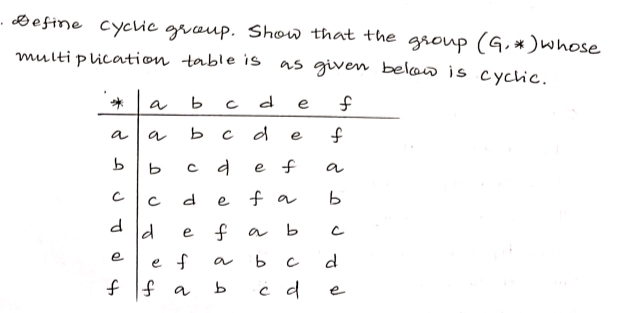 . Define cyclic group. Show that the group (G, *) whose
multiplication table is as given below is cyclic.
* a b c d e f
a a b c d e f
b b c d e f a
c c d e f a b
d d e f a b c
e e f a b c d
f f a b c d e